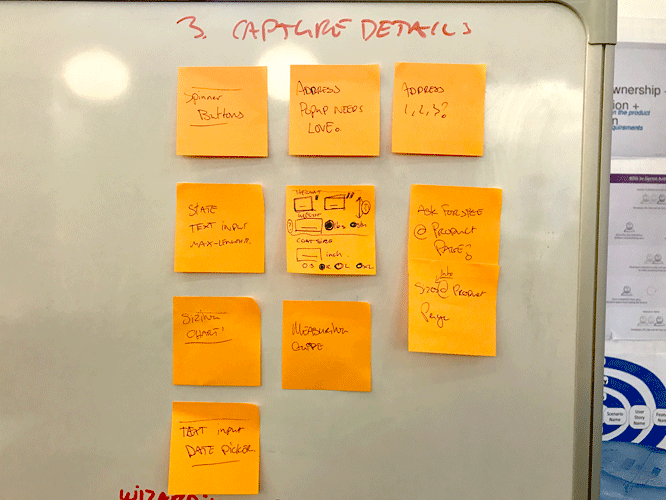 3. CAPTURE DETAILS
Spinner
Buttons
ADDRESS
POPUP NEEDS
LOVE.
ADDRESS
1, 2, 3?
STATE
TEXT INPUT
MAX-LENGTH.
HEIGHT
WEIGHT
lbs
COAT SIZE
inch
S
L
XL
ASK FOR SIZE
@ PRODUCT
PAGE?
Info
Size @ PRODUCT
Page
SIZING
CHART!
MEASURING
GUIDE
TEXT input
DATE PICKER
WIZARD:
wnership -
ion +
n the product
quirements
Scenario
Name
User
Story
Name